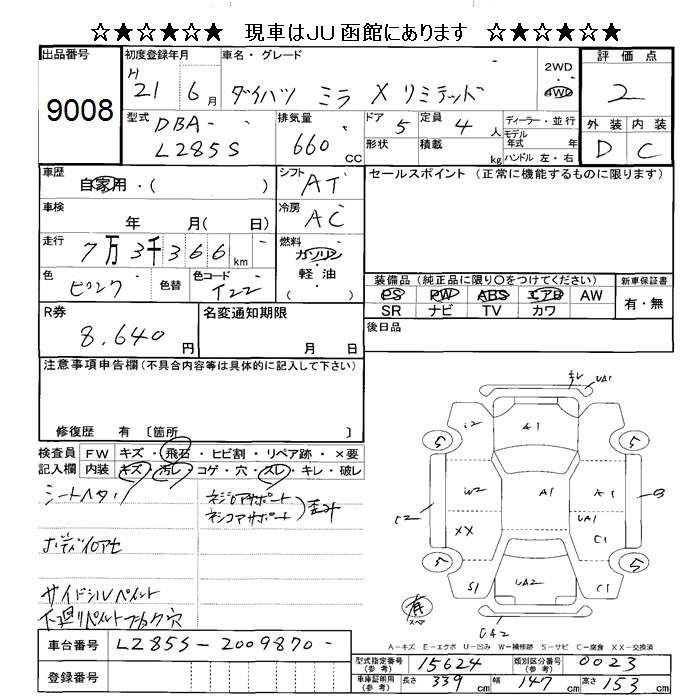 ☆★☆★☆ 現車はJU函館にあります ☆★☆★☆
出品番号
9008
初度登録年月
H
21 6月
車名・グレード
ダイハツ ミラ X リミテッド
2WD
4WD
評価点
2
外装 内装
D C
型式
DBA-
L285S
排気量
660 CC
ドア 5
形状
定員 4 人
積載 kg
ディーラー・並行
モデル
年式 年
ハンドル 左・右
車歴
自家用・( )
シフト
AT
車検
年 月( 日)
冷房
AC
走行
7万3千366km
燃料
ガソリン
軽油
( )
色
ピンク
色替
色コード
T22
セールスポイント(正常に機能するものに限ります)
装備品(純正品に限り〇をつけてください)
PS PW ABS エアB AW
SR ナビ TV カワ
新車保証書
有・無
後日品
R券
8,640円
名変通知期限
月 日
注意事項申告欄(不具合内容等は具体的に記入して下さい)
修復歴 有 〔箇所 〕
検査員
記入欄
FW キズ・飛石・ヒビ割・リペア跡・×要
内装 キズ・汚レ・コゲ・穴・スレ・キレ・破レ
シートヘタリ
ボディイロアセ
サイドシルペイント
下廻リペイントフカク穴
ネジロアサポート
ネジコアサポート
キレ UA1
i2 A1
5 5
W2 A1 A1
C2 B
XX UA1 C1
5 5
S1 UA2 C1
有
スペア
UA2
A-キズ E-エクボ U-凹み W-補修跡 S-サビ C-腐食 XX-交換済
車台番号
L285S-2009870-
登録番号
型式指定番号
(参考)
15624
類別区分番号
(参考)
0023
車庫証明用
(参考)
長さ 339cm 幅 147cm 高さ 153cm